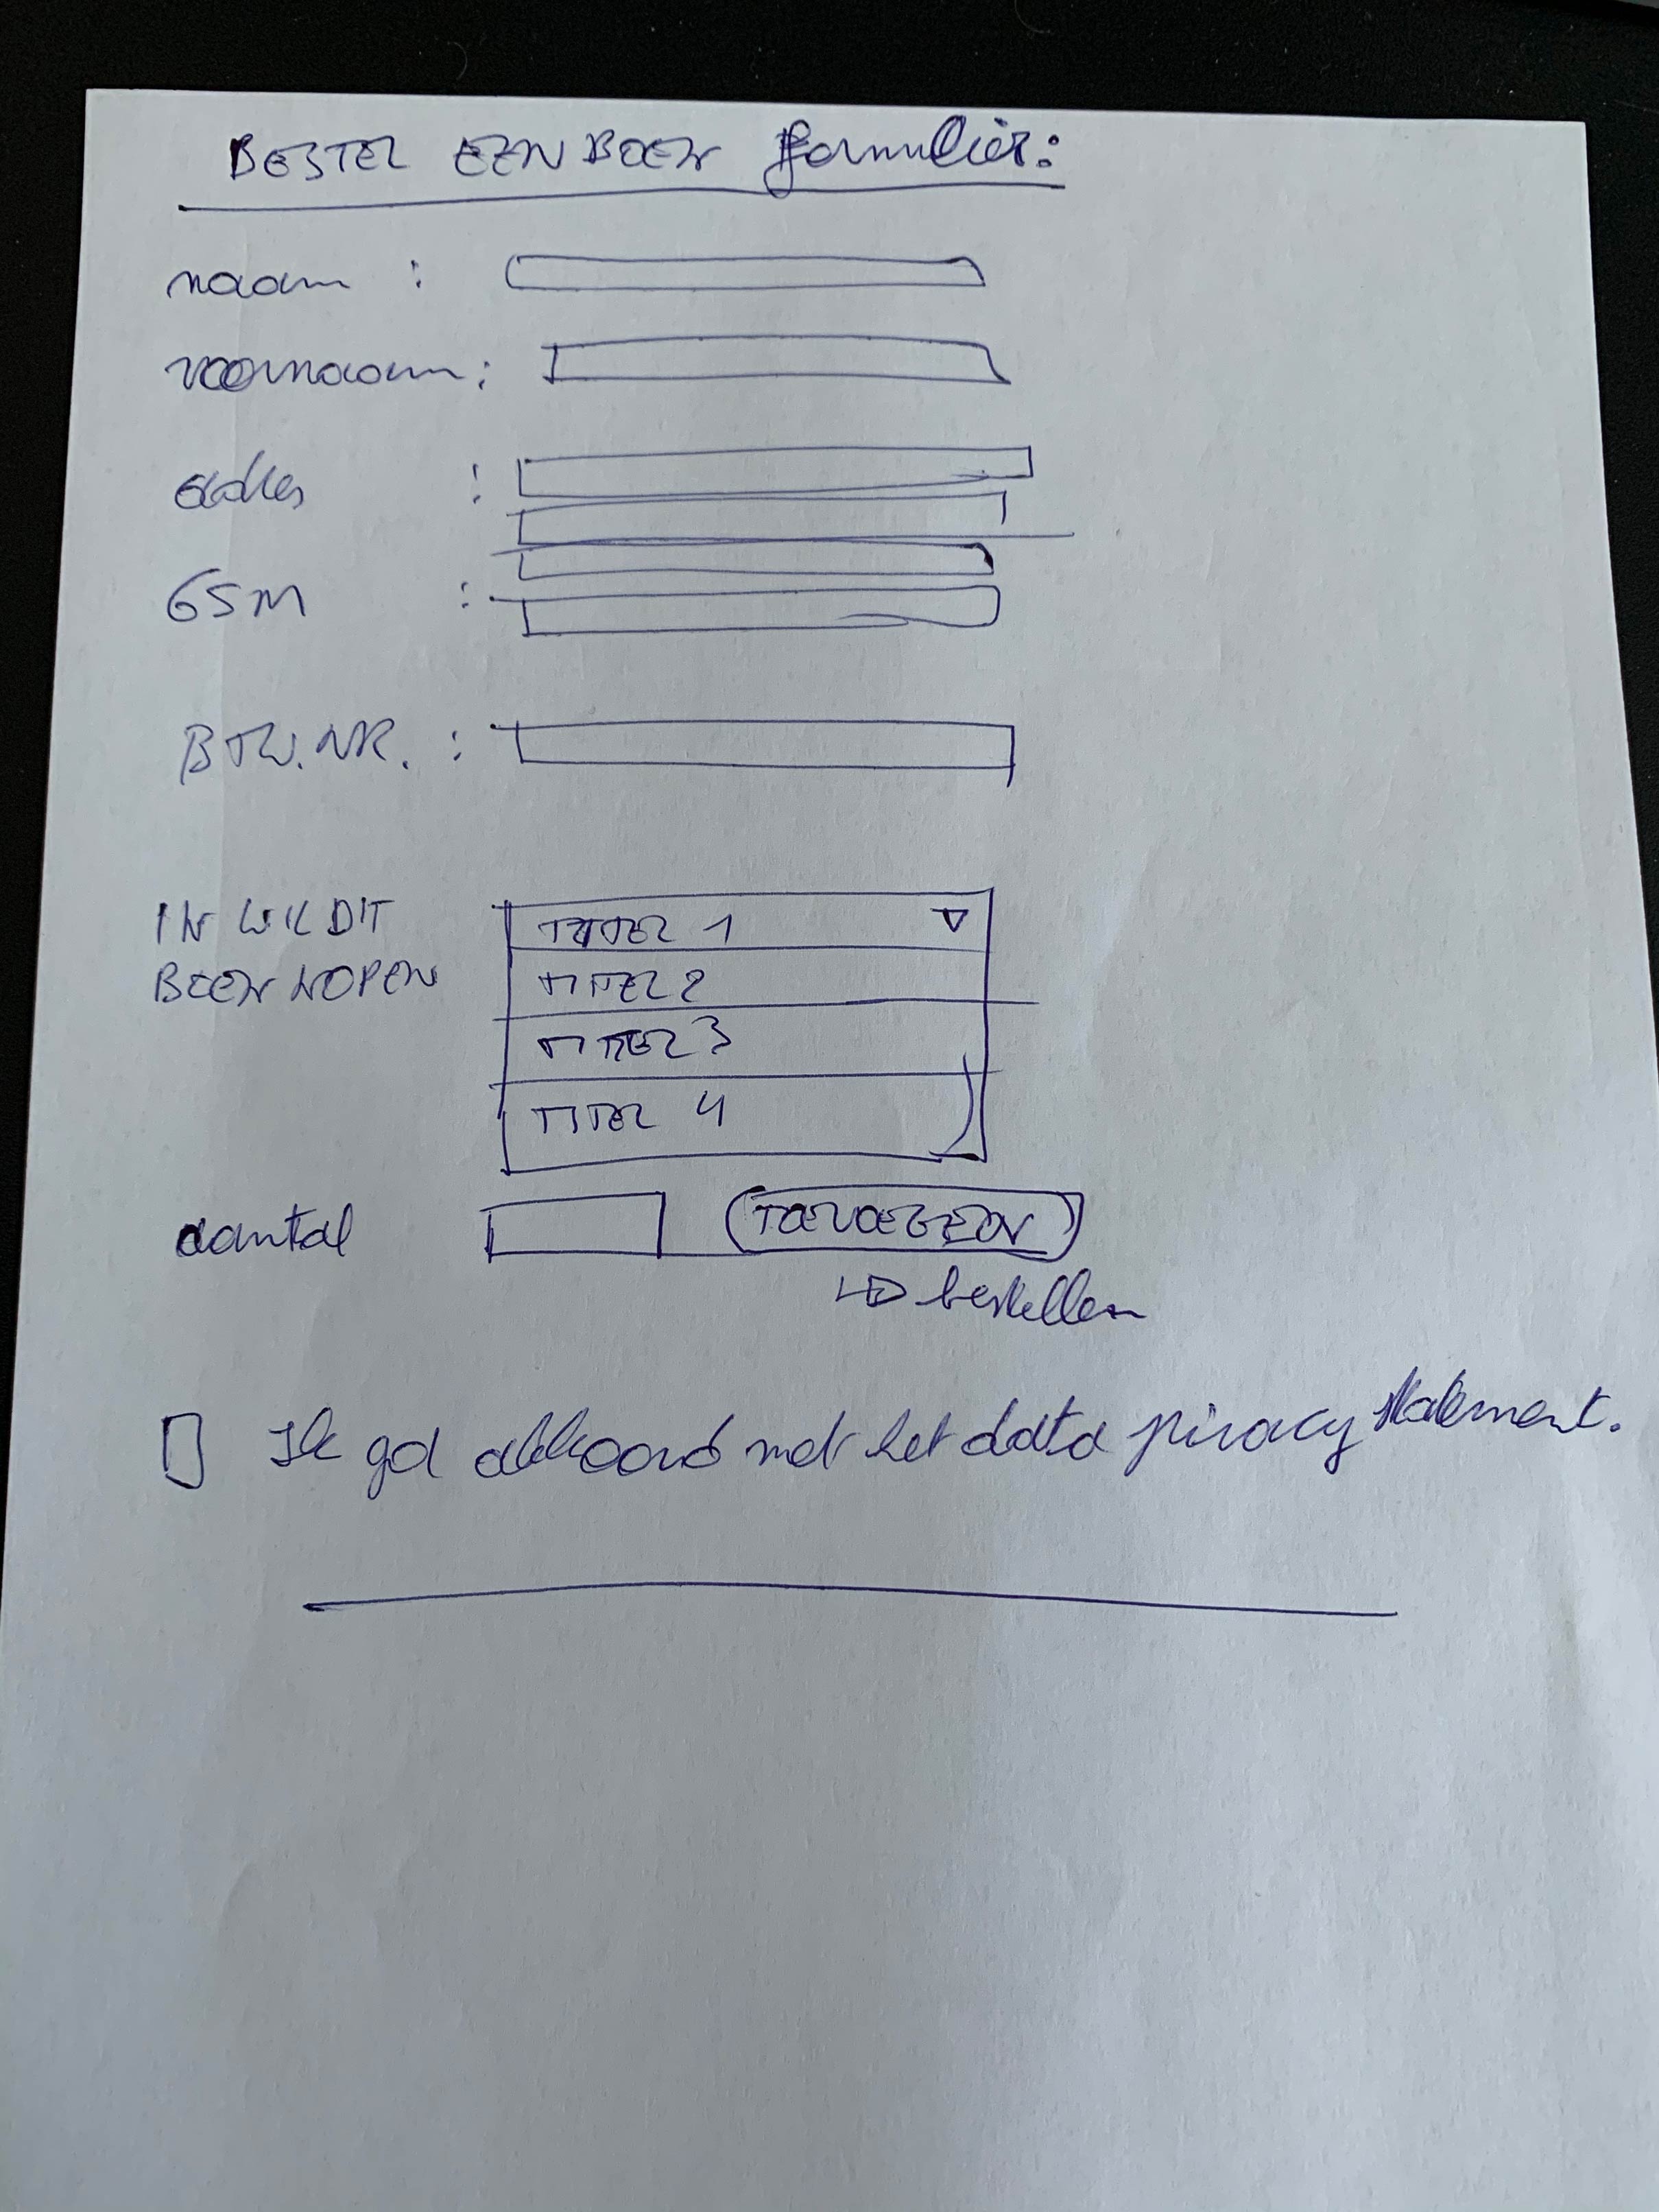 BESTEL EEN BOEK formulier:
naam :
voornaam :
adres :
GSM :
BTW. NR. :
IK WIL DIT
BOEK KOPEN
TITEL 1
TITEL 2
TITEL 3
TITEL 4
aantal
TOEVOEGEN
bestellen
Ik ga akkoord met het data piracy statement.